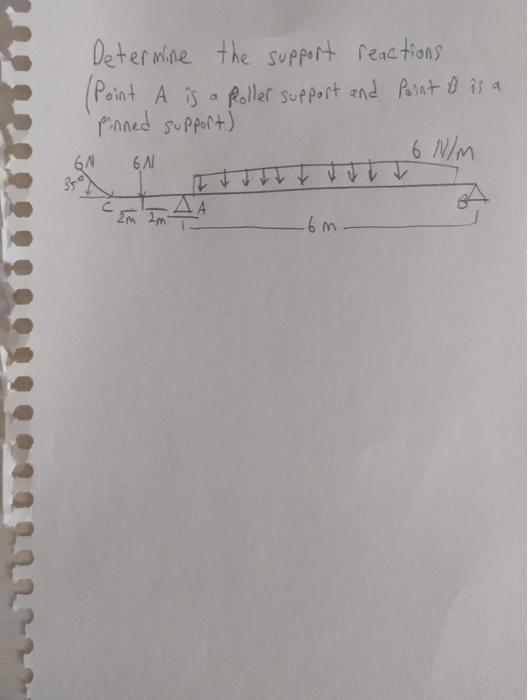 Determine the support reactions
(Point A is a Roller support and Point B is a
pinned support)
6N 6N 6 N/m
35°
C 2m 2m A B
6 m